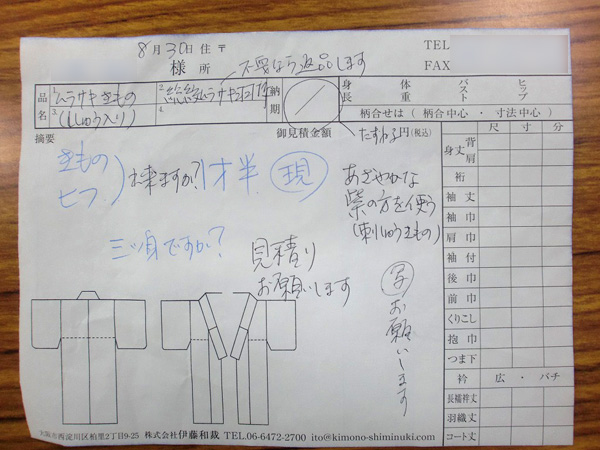 8月30日 住〒 TEL
様 所 不要なら返品します FAX
品名 1. ムラサキきもの 2. 絵羽 納期 身長 体重 バスト ヒップ
3. (ししゅう入り) 4. 柄合せは(柄合中心・寸法中心)
摘要 御見積金額 たずねる円(税込) 尺 寸 分
身丈 背 肩
きもの
ヒフ
出来ますか? 1才半 現
あざやかな
紫の方を使う
(刺しゅうきもの)
三ツ身ですか?
見積り
お願いします
写
お願いします
裄
袖丈
袖巾
肩巾
袖付
後巾
前巾
くりこし
抱巾
つま下
衿 広・バチ
長襦袢丈
羽織丈
コート丈
大阪市西淀川区柏里2丁目9-25 株式会社 伊藤和裁 TEL.06-6472-2700 ito@kimono-shiminuki.com